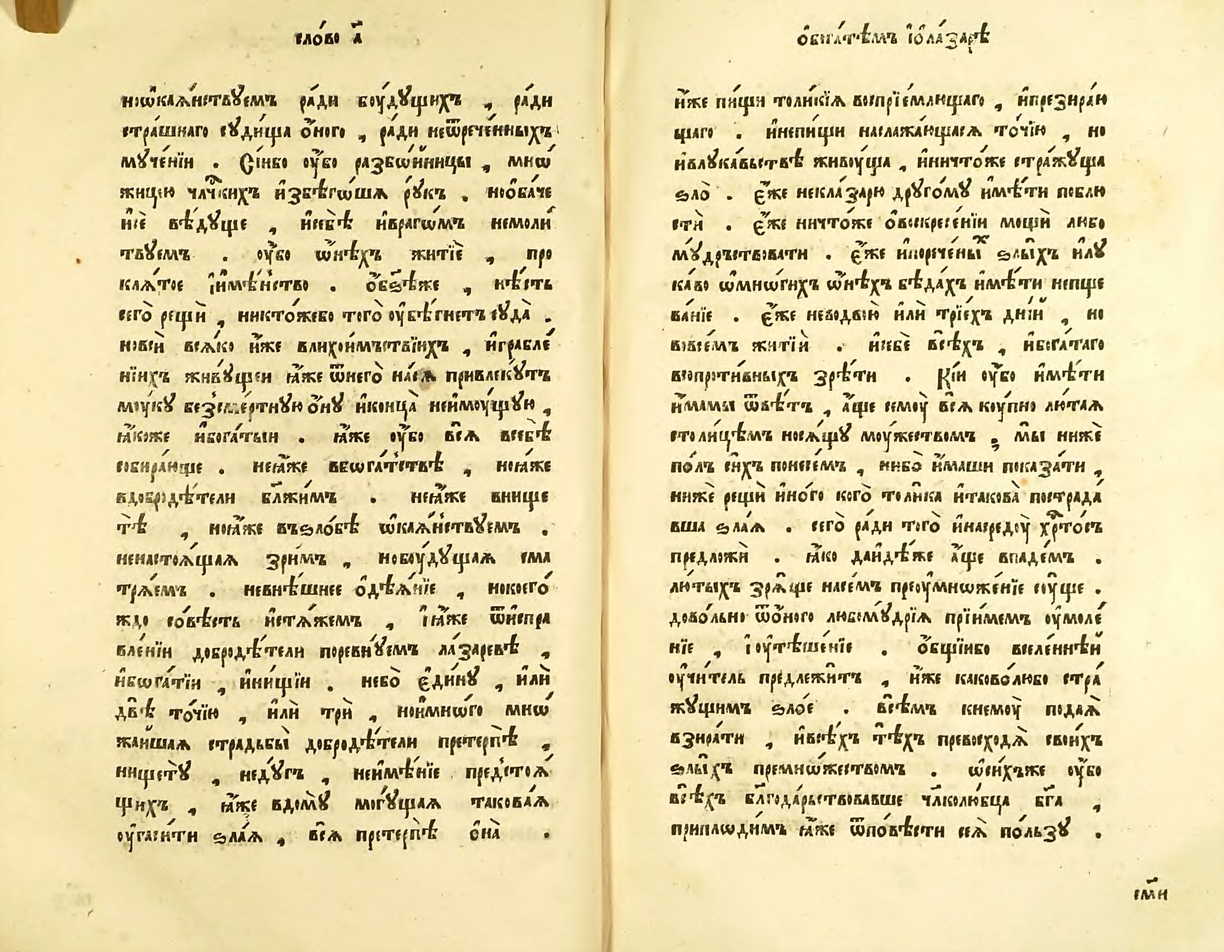 сло́во а҃
ниѡ҆кая́нствꙋемъ ра́ди боу́дꙋщихъ , ра́ди
стра́шнаго сꙋди́ща о҆́ного , ра́ди неѿрече́нныхъ
мꙋче́нїи . Сі́ибо оу҆́бо разбѡ́йницы , мнѡ́
жицю чл҃чкихъ и҆збѣ́гѡшѧ рꙋ́к . нѡ҆ба́че
и҆се́ вѣ́дꙋще , и҆себѣ̀ и҆врагѡ́мъ немоли́
твꙋемъ . оу҆́бо ѡ҆́нѣхъ житїѐ , про
клѧ́тое і҆и҆мѣ́нство . ѻ҆бѣ́же , нѣ́сть
сего̀ рещѝ , никто́жебо того̀ оу҆бѣ́гнетъ сꙋда̀ .
новсѝ всѧ́ко и҆́же влихои́мьствїихъ , и҆грабле́
нїихъ живꙋ́щеи ꙗ҆́же ѿнего̀ на́сѧ привлекꙋ́тъ
моу́кꙋ безсме́ртнꙋю о҆́нꙋ и҆конца̀ неи҆моу́щꙋю ,
ꙗ҆́коже и҆бога́тыи . ꙗ҆́же оу҆́бо всѧ̀ всебѣ̀
собира́юще . неꙗ҆́же вбѡга́тствѣ , ноꙗ҆́же
вдобродѣ́тели бл҃жи́мъ . неꙗ҆́же внище
тѣ̀ , ноꙗ҆́же въѕло́бѣ ѡ҆кая́нствꙋемъ .
ненастоѧ́щаѧ зри́мъ , нобоу́дꙋщаѧ сма
трѧ́емъ . невнѣ́шнее о҆дѣѧ́нїе , нокоего́
ждо со́вѣсть и҆стѧ́жемъ , і҆ꙗ҆́же ѿи҆спра
вле́нїи добродѣ́тели поревнꙋ́емъ ла́заревѣ ,
и҆бѡга́тїи , и҆ни́щїи . небо̀ є҆ди́нꙋ , и҆лѝ
двѣ̀ то́чїю , и҆лѝ трѝ , нои҆мно́го мнѡ
жа́йшаѧ страдьбы̀ добродѣ́тели претерпѣ̀ ,
нищетꙋ̀ , недꙋ́гъ , неи҆мѣ́нїе предстоѧ́
щихъ , ꙗ҆́же вдомꙋ̀ могꙋ́щаѧ такова́ѧ
оу҆гаси́ти ѕла́ѧ , всѧ̀ претерпѣ̀ о҆́на .
ѻ҆бога́тѣмъ і҆ѻ҆ла́зарѣ
и҆́же пи́щи толи́кїѧ воспрїе́млющаго , и҆презира́ю
щаго . и҆непи́щи наслажа́ющасѧ то́чїю , но
и҆влꙋка́вьствѣ живоу́ща , и҆ничто́же стра́жꙋща
ѕло̀ . є҆́же некла́зарю дрꙋго́мꙋ и҆мѣ́ти поблю
стѝ . є҆́же ничто́же ѡ҆воскресе́нїи мощѝ либо
мꙋ́дрьствовати . є҆́же и҆порече́ны́х ѕлы́хъ и҆лꙋ
ка́во ѡ҆мнѡ́гихъ ѡ҆́нѣхъ бѣда́хъ и҆мѣ́ти непще
ва́нїе . є҆́же неводвою̀ и҆лѝ трїе́хъ днїй , но
вовсе́мъ житїѝ . и҆себѐ всѣ́хъ , и҆бога́таго
вѡпроти́вныхъ зрѣ́ти . Кі́и оу҆́бо и҆мѣ́ти
и҆́мамы ѿвѣ́тъ , а҆́ще семоу̀ всѧ̀ коу́пно лю́таѧ
столи́цѣмъ носѧ́щꙋ моу́жествомъ , мы̀ нижѐ
по́лъ си́хъ понесе́мъ , нибо̀ и҆́маши показа́ти ,
нижѐ рещѝ и҆но́го кого̀ толи́ка и҆такова̀ пострада́
вша ѕла́ѧ . сего̀ ра́ди того̀ и҆насредоу̀ хр҃то́съ
предложѝ . ꙗ҆́ко дай́дѣже а҆́ще впаде́мъ .
лю́тыхъ зрѧ́ще насе́мъ преоу҆мнѡже́нїе сꙋ́ще .
дово́льно ѿо҆́ного любомꙋ́дрїѧ прїи́мемъ оу҆моле́
нїе , і҆оу҆тѣше́нїе . ѻ҆́бщїибо вселе́ннѣй
оу҆чи́тель предлежи́тъ , и҆́же каково́любо стра́
жꙋщимъ ѕло́е . всѣ́мъ кнемоу̀ пода́ѧ
взира́ти , и҆всѣ́хъ тѣ́хъ превосходѧ̀ свои́хъ
ѕлы́хъ премно́жествомъ . ѡ҆си́хъже оу҆́бо
всѣ́хъ бл҃года́рьствовавше чл҃колю́бца бг҃а ,
приплѡди́мъ ꙗ҆́же ѿпо́вѣсти сеѧ̀ по́льзꙋ .
см҃и